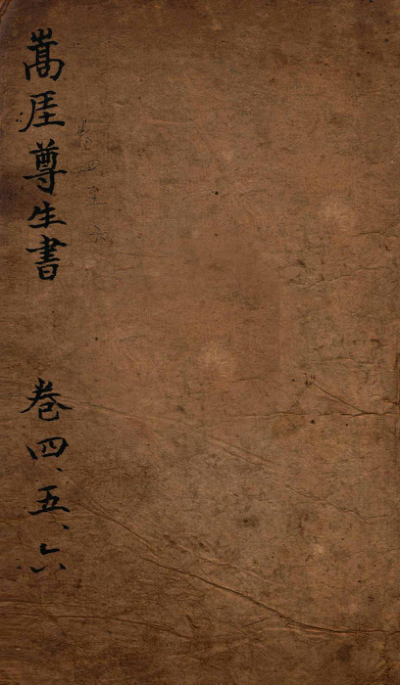 嵩厓尊生書 卷四、五、六